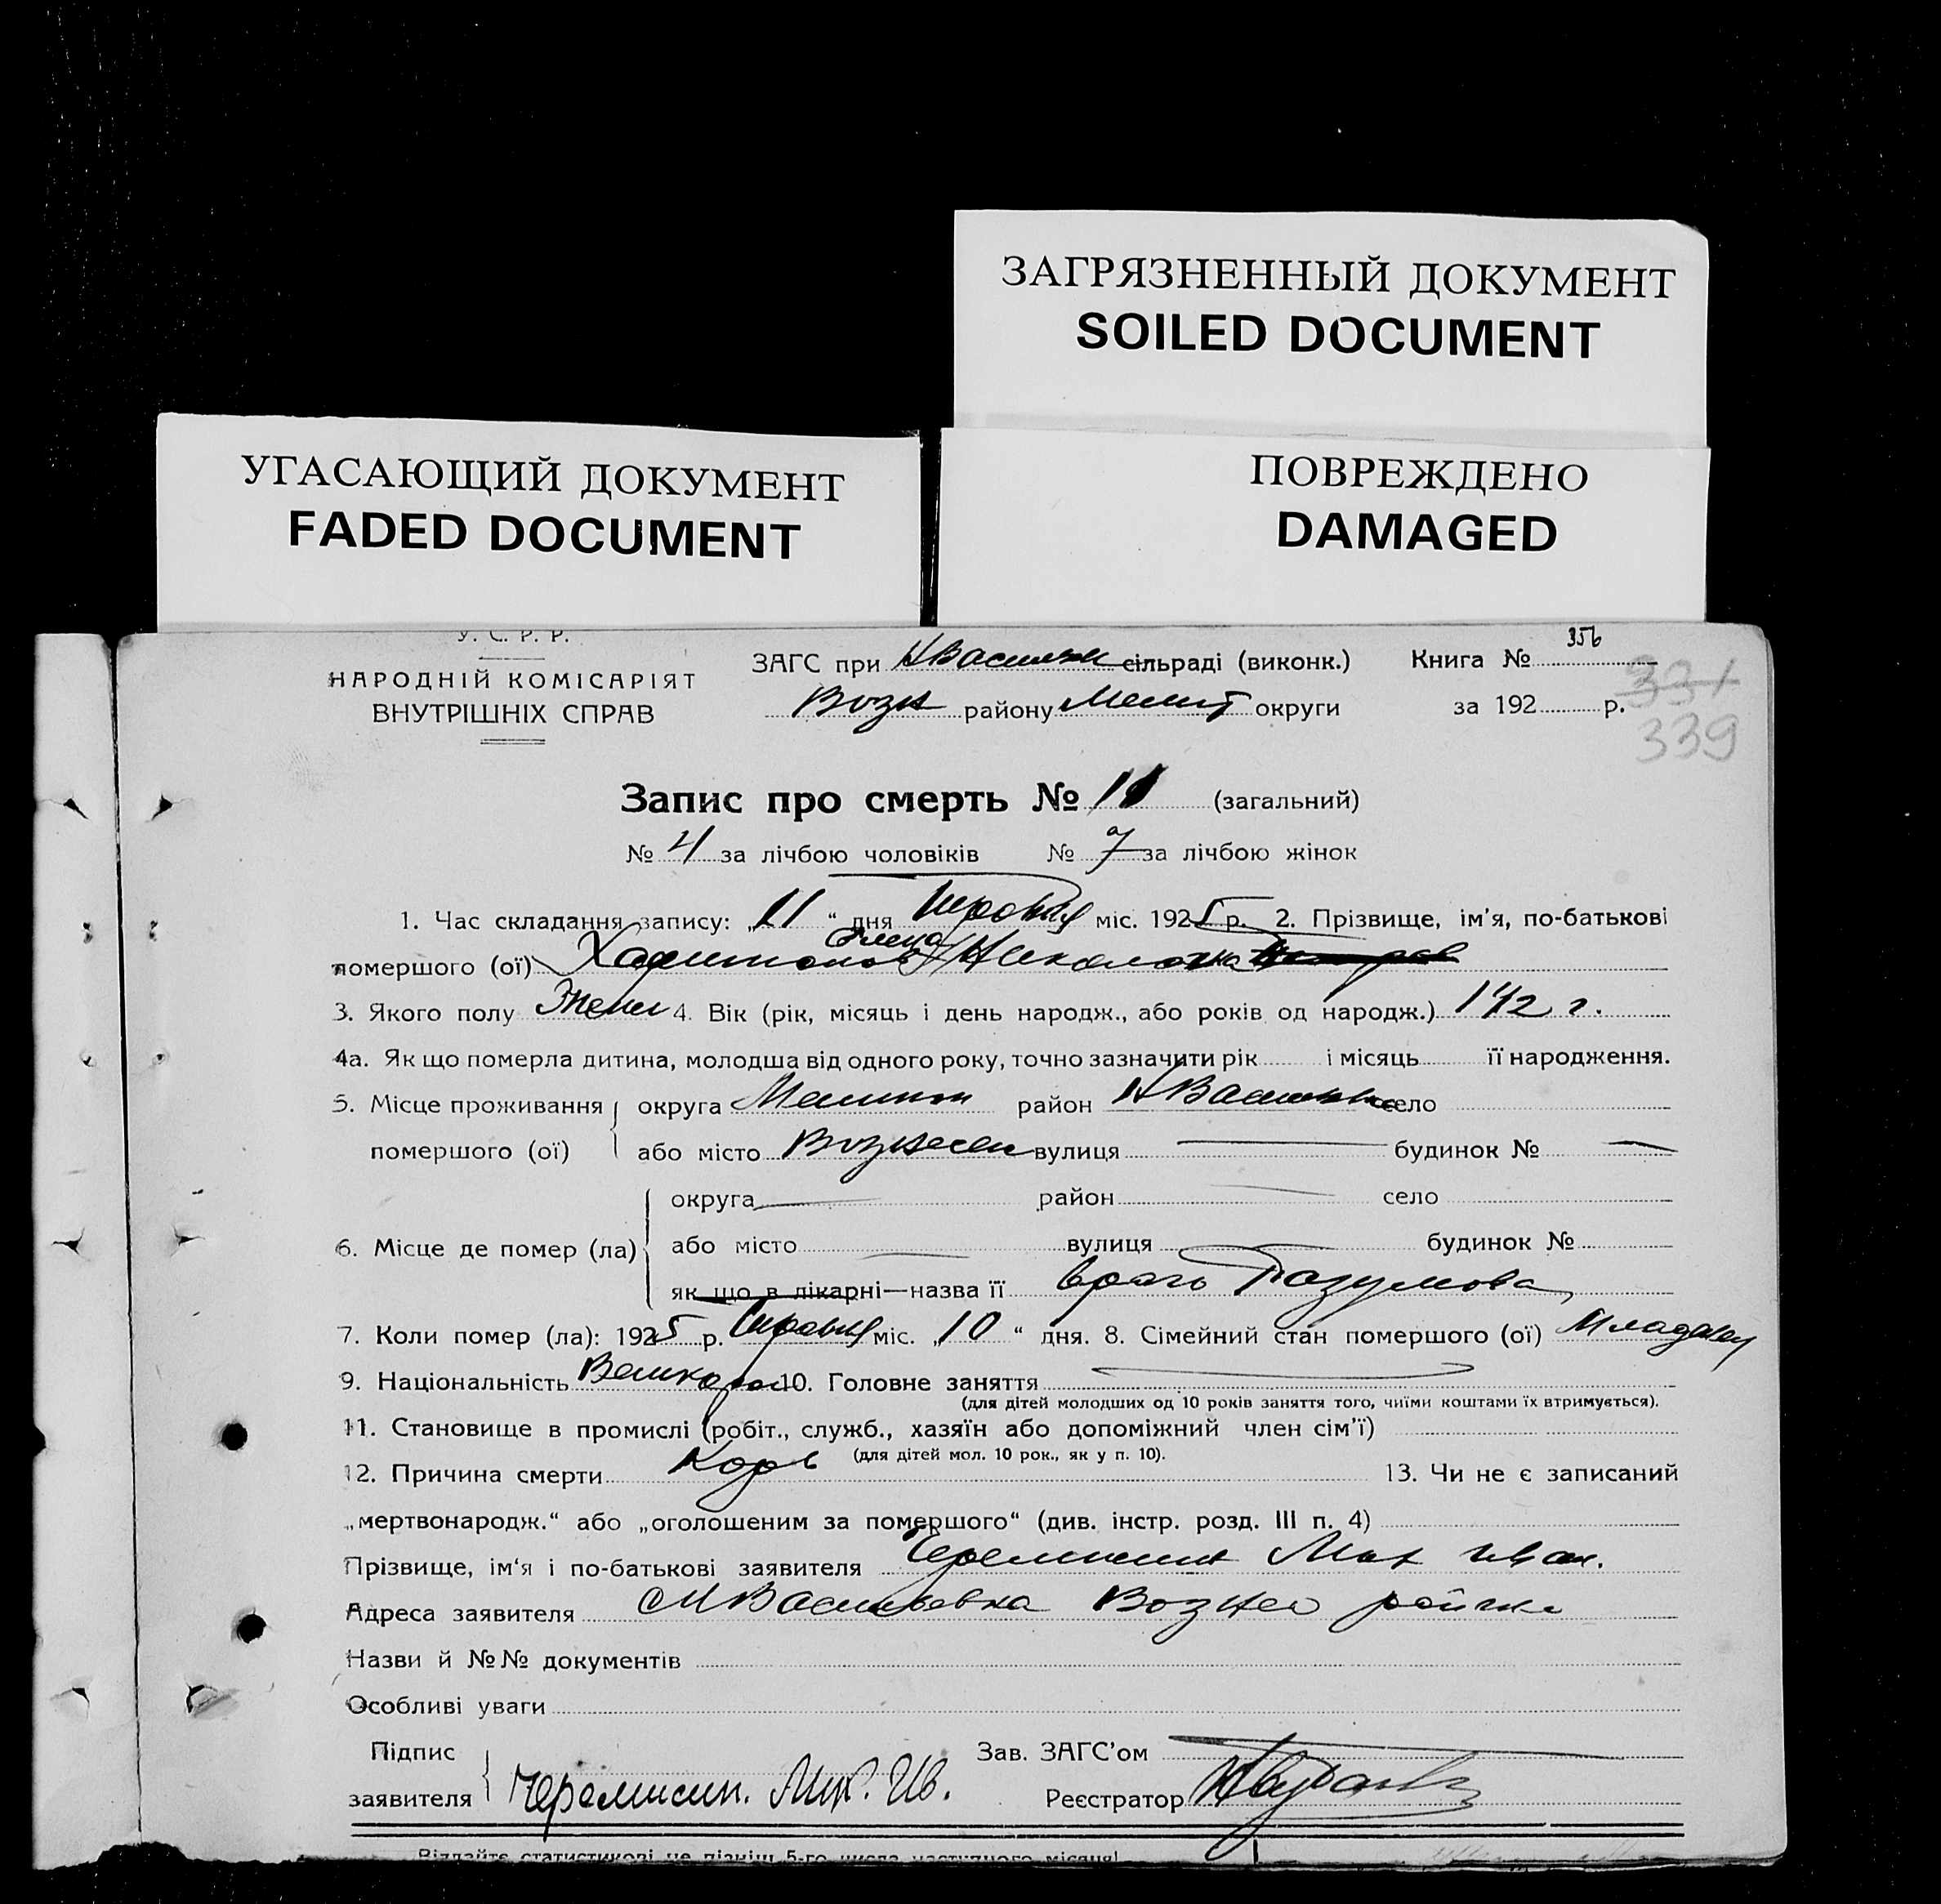 ЗАГРЯЗНЕННЫЙ ДОКУМЕНТ
SOILED DOCUMENT
УГАСАЮЩИЙ ДОКУМЕНТ
FADED DOCUMENT
ПОВРЕЖДЕНО
DAMAGED
У. С. Р. Р.
НАРОДНІЙ КОМІСАРІЯТ
ВНУТРІШНІХ СПРАВ
ЗАГС при сільраді (виконк.) Книга № 356
Возн району Мелит округи за 192 р.
331
339
Запис про смерть № 11 (загальний)
№ 4 за лічбою чоловіків № 7 за лічбою жінок
1. Час складання запису: „11“ дня міс. 1925 р. 2. Прізвище, ім'я, по-батькові
Елена
помершого (ої) Харитонова
3. Якого полу Жен 4. Вік (рік, місяць і день народж., або років од народж.) 1 1/2 г.
4а. Як що померла дитина, молодша від одного року, точно зазначити рік і місяць її народження.
5. Місце проживання округа район село
помершого (ої) або місто Вознесен вулиця — будинок № —
округа — район — село
6. Місце де помер (ла) або місто — вулиця — будинок №
як що в лікарні—назва її врачь Разумова
7. Коли помер (ла): 1925 р. міс. „10“ дня. 8. Сімейний стан помершого (ої)
9. Національність Великорос 10. Головне заняття —
(для дітей молодших од 10 років заняття того, чиїми коштами їх втримується).
11. Становище в промислі (робіт., служб., хазяїн або допоміжний член сім'ї)
(для дітей мол. 10 рок., як у п. 10).
12. Причина смерти Корь 13. Чи не є записаний
„мертвонародж.“ або „оголошеним за помершого“ (див. інстр. розд. III п. 4)
Прізвище, ім'я і по-батькові заявителя Черемисин Мих Иван.
Адреса заявителя Васильевка Возне района
Назви й №№ документів
Особливі уваги
Підпис Зав. ЗАГС'ом
заявителя Черемисин. Мих. Ив. Реєстратор
Віддайте статистикові не пізніш 5-го числа наступного місяця!